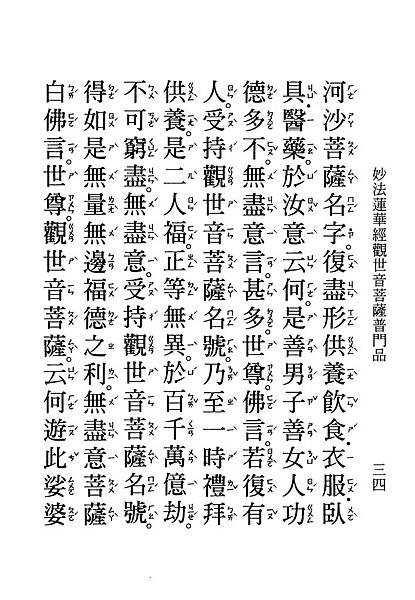 妙法蓮華經觀世音菩薩普門品 三四
河沙菩薩名字。復盡形供養飲食・衣服・臥
具・醫藥。於汝意云何。是善男子善女人功
德多不。無盡意言。甚多。世尊。佛言。若復有
人。受持觀世音菩薩名號。乃至一時禮拜
供養。是二人福。正等無異。於百千萬億劫。
不可窮盡。無盡意。受持觀世音菩薩名號。
得如是無量無邊福德之利。無盡意菩薩
白佛言。世尊。觀世音菩薩。云何遊此娑婆